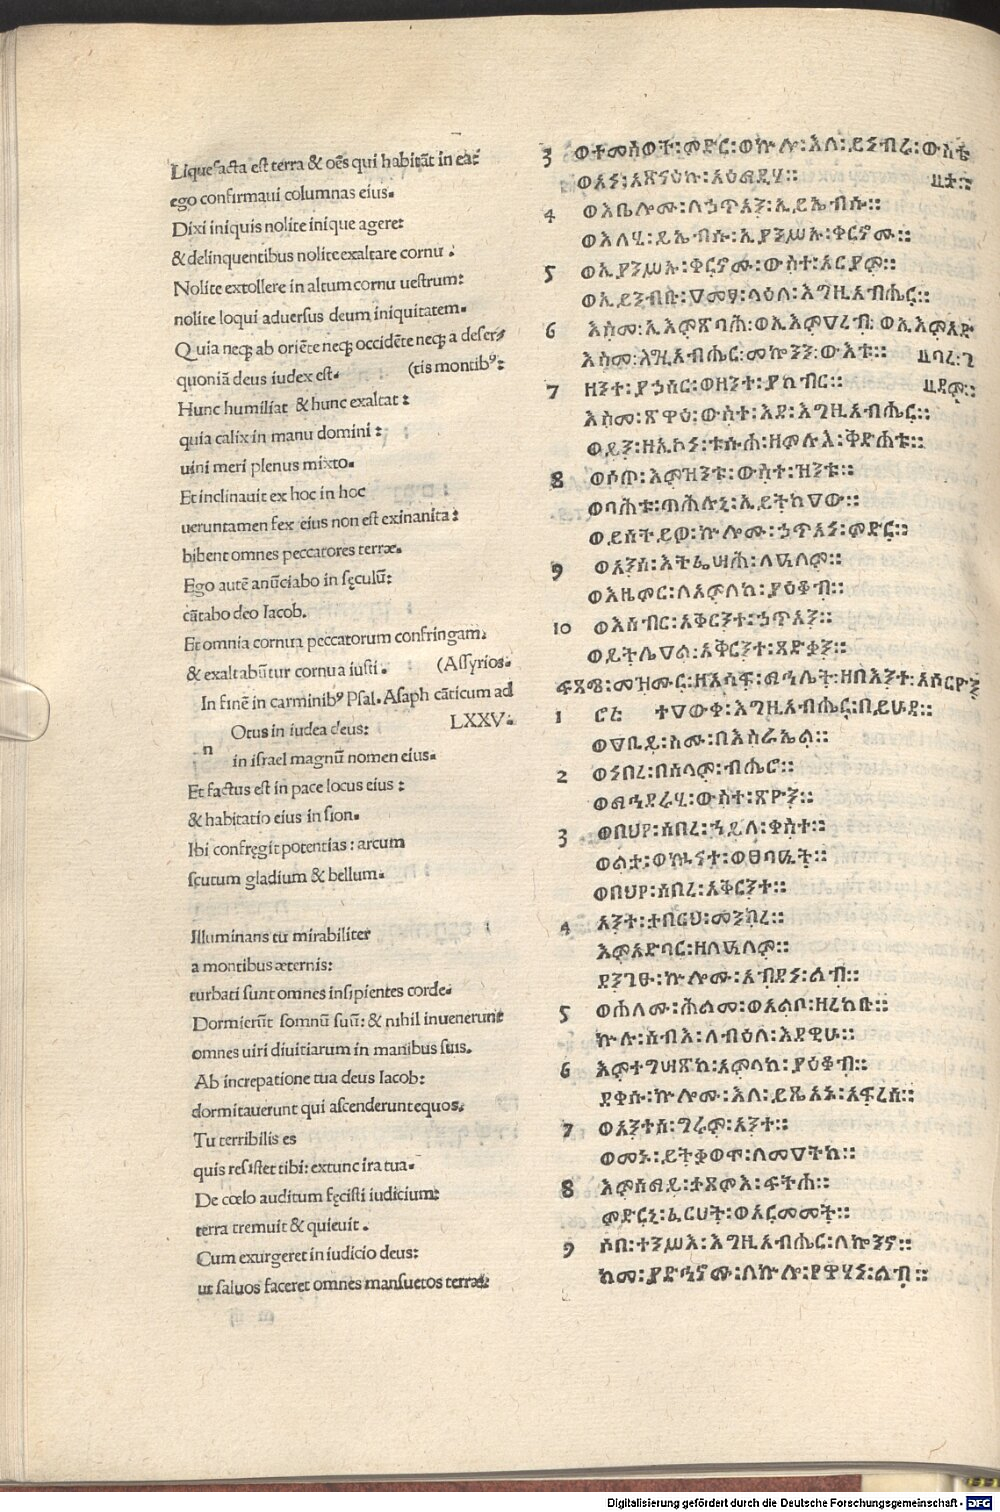 Liquefacta est terra & oēs qui habitāt in ea:
ego confirmaui columnas eius.
Dixi iniquis nolite inique agere:
& delinquentibus nolite exaltare cornu :
Nolite extollere in altum cornu uestrum:
nolite loqui aduersus deum iniquitatem.
Quia neq; ab oriēte neq; occidēte neq; a deser⸗
quoniā deus iudex est. (tis montib⁹:
Hunc humiliat & hunc exaltat :
quia calix in manu domini :
uini meri plenus mixto.
Et inclinauit ex hoc in hoc
ueruntamen fex eius non est exinanita :
bibent omnes peccatores terræ.
Ego autē anūciabo in sęculū:
cātabo deo Iacob.
Et omnia cornua peccatorum confringam:
& exaltabūtur cornua iusti . (Assyrios.
In finē in carminib⁹ Psal. Asaph cāticum ad
Otus in iudea deus: LXXV.
n
in israel magnū nomen eius.
Et factus est in pace locus eius :
& habitatio eius in sion.
Ibi confręgit potentias : arcum
scutum gladium & bellum.
Illuminans tu mirabiliter
a montibus æternis:
turbati sunt omnes insipientes corde.
Dormierūt somnū suū: & nihil inuenerunt
omnes uiri diuitiarum in manibus suis.
Ab increpatione tua deus Iacob:
dormitauerunt qui ascenderunt equos.
Tu terribilis es
quis resistet tibi: extunc ira tua.
De cœlo auditum fęcisti iudicium:
terra tremuit & quieuit .
Cum exurgeret in iudicio deus:
ut saluos faceret omnes mansuetos terræ:
3 ወተመሰወት፡ምድር፡ወኵሉ፡እለ፡ይነብሩ፡ውስቴ
ወአነ፡አጽናዕኩ፡አዕማዲሃ። ታ።
4 ወእቤሎሙ፡ለኃጥአን፡ኢይኤብሱ።
ወእለሂ፡ይኤብሱ፡ኢያንሥኡ፡ቀርኖሙ።
5 ወኢያንሥኡ፡ቀርኖሙ፡ውስተ፡አርያም።
ወኢይንብቡ፡ዐመፃ፡ላዕለ፡እግዚአብሔር።
6 እስመ፡ኢእምጽባሕ፡ወኢእምዐረብ፡ወኢእምአድ
እስመ፡እግዚአብሔር፡መኰንን፡ውእቱ። ባረ፡ገ
7 ዘንተ፡ያኃስር፡ወዘንተ፡ያከብር። ዳም።
እስመ፡ጽዋዕ፡ውስተ፡እደ፡እግዚአብሔር።
ወይን፡ዘኢኮነ፡ቱሱሐ፡ዘምሉእ፡ቅድሐቱ።
8 ወሶጠ፡እምዝንቱ፡ውስተ፡ዝንቱ።
ወባሕቱ፡ጠሕሉኒ፡ኢይትከዐው።
ወይሰትይዎ፡ኵሎሙ፡ኃጥአነ፡ምድር።
9 ወአንሰ፡እትፌሣሕ፡ለዓለም።
ወእዜምር፡ለአምላከ፡ያዕቆብ።
10 ወእሰብር፡አቅርንተ፡ኃጥአን።
ወይትሌዐል፡አቅርንተ፡ጻድቃን።
መዝሙር፡ዘአሳፍ፡ማኅሌት፡ዘበእንተ፡አሶርዮን
1 ተዐውቀ፡እግዚአብሔር፡በይሁዳ።
ወዐቢይ፡ስሙ፡በእስራኤል።
2 ወነበረ፡በሰላም፡ብሔሮ።
ወማኅደራሂ፡ውስተ፡ጽዮን።
3 ወበህየ፡ሰበረ፡ኃይለ፡ቀስት።
ወልታ፡ወኵናተ፡ወፀባዒት።
ወበህየ፡ሰበረ፡አቅርንተ።
4 አንተ፡ታበርህ፡መንክረ።
እምአድባር፡ዘለዓለም።
ደንገፁ፡ኵሎሙ፡አብዳነ፡ልብ።
5 ወሐለሙ፡ሕልመ፡ወአልቦ፡ዘረከቡ።
ኵሉ፡ሰብእ፡ለብዕለ፡እደዊሁ።
6 እምተግሣጽከ፡አምላከ፡ያዕቆብ።
ደቀሱ፡ኵሎሙ፡እለ፡ይጼአኑ፡አፍረሰ።
7 ወአንተሰ፡ግሩም፡አንተ።
ወመኑ፡ይትቃወሞ፡ለመዐትከ።
8 እምሰማይ፡ታጸምእ፡ፍትሐ።
ምድርኒ፡ፈርሀት፡ወአርመመት።
9 ሶበ፡ተንሥአ፡እግዚአብሔር፡ለኰንኖ።
ከመ፡ያድኅኖሙ፡ለኵሎ፡የዋሃነ፡ልብ።
Digitalisierung gefördert durch die Deutsche Forschungsgemeinschaft - DFG